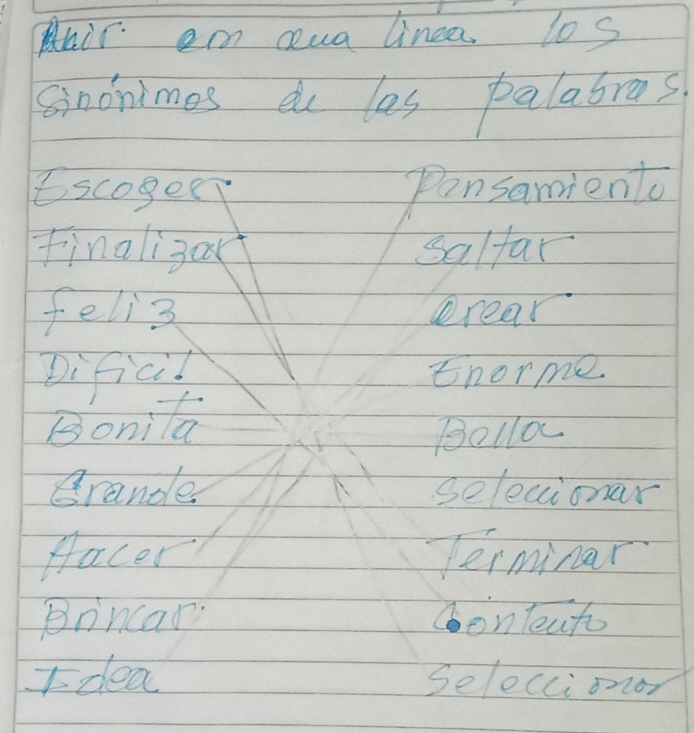 Unir en una linea los
Sinónimos de las palabras.
Escoger Pensamiento
Finalizar Saltar
Feliz Crear
Dificil Enorme
Bonita Bella
Grande Seleccionar
Hacer Terminar
Brincar Contento
Idea Seleccionar